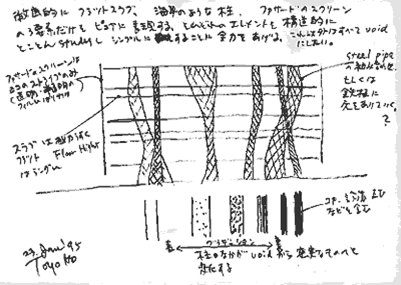 徹底的にフラットスラブ、海草のような柱、ファサードのスクリーン
の3要素だけをピュアに表現する。それぞれのエレメントを構造的に
とことんstudyし シンプルにすることに全力をあげる。これ以外はすべてvoid
にしたい。
ファサードのスクリーンは
ヨコのストライプのみ
(透明／半透明の
フィルム
スラブは極力薄く
フラット Floor Hight
はランダム
steel pipe
の組み合わせ
もしくは
鉄板に
穴をあけていく。
?
コア、設備
なども含む
グラデーション
柱のなかがvoidから充実なものへと
変化する
23. Jan. '95
Toyo Ito